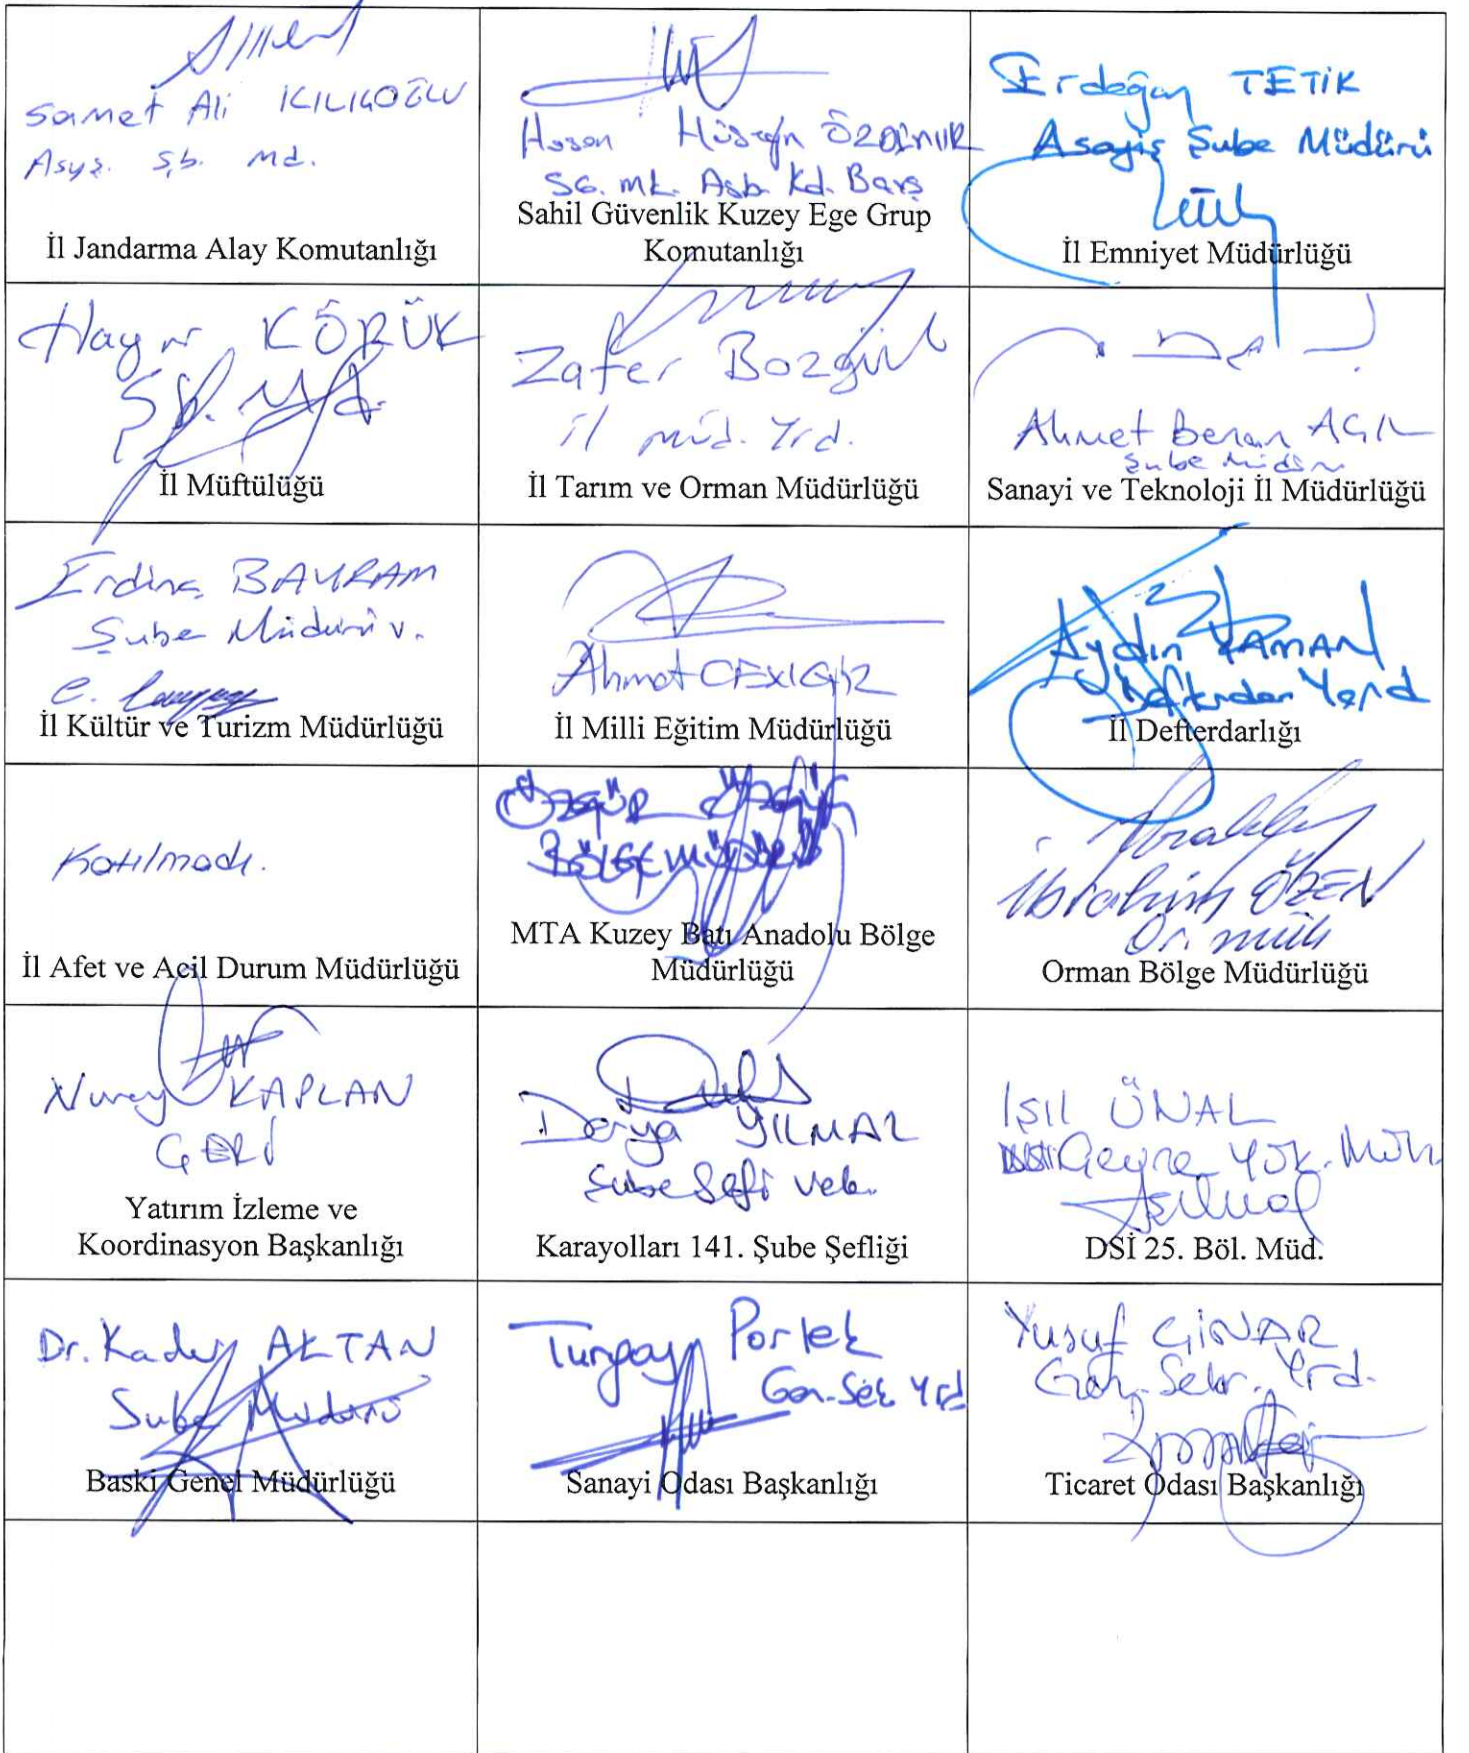 Samet Ali KILIÇOĞLU
Asyş. Şb. Md.
İl Jandarma Alay Komutanlığı
Hasan Hüseyin ÖZDİNUR
SG. Mk. Asb. Kd. Bçvş
Sahil Güvenlik Kuzey Ege Grup
Komutanlığı
Erdoğan TETİK
Asayiş Şube Müdürü
İl Emniyet Müdürlüğü
KÖRÜK
Şb. Md.
İl Müftülüğü
Zafer Bozgül
il müd. Yrd.
İl Tarım ve Orman Müdürlüğü
Ahmet Benan AÇIL
Şube Müdürü
Sanayi ve Teknoloji İl Müdürlüğü
Erdinç BAYRAM
Şube Müdürü v.
İl Kültür ve Turizm Müdürlüğü
Ahmet
İl Milli Eğitim Müdürlüğü
Aydın YAMAN
Defterdar Yard
İl Defterdarlığı
Katılmadı.
İl Afet ve Acil Durum Müdürlüğü
ÖZGÜR
BÖLGE MÜDÜRÜ
MTA Kuzey Batı Anadolu Bölge
Müdürlüğü
İbrahim ÖZEN
Or. müh
Orman Bölge Müdürlüğü
Nuray KAPLAN
Yatırım İzleme ve
Koordinasyon Başkanlığı
Derya YILMAZ
Şube Şefi Vek.
Karayolları 141. Şube Şefliği
Işıl ÜNAL
Çevre Yük. Müh.
DSİ 25. Böl. Müd.
Dr. Kadir ALTAN
Şube Müdürü
Baski Genel Müdürlüğü
Turgay Porlek
Gen. Sek Yrd
Sanayi Odası Başkanlığı
Yusuf ÇINAR
Gen. Sekr. Yrd.
Ticaret Odası Başkanlığı